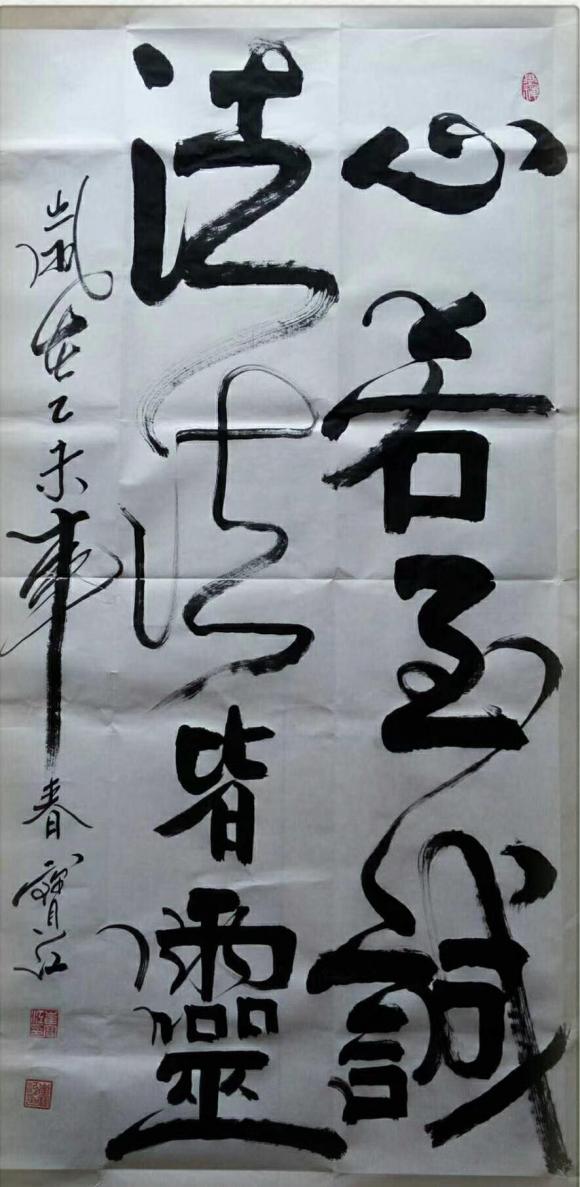 心若至誠
法法皆靈
歲在乙未年春寶江